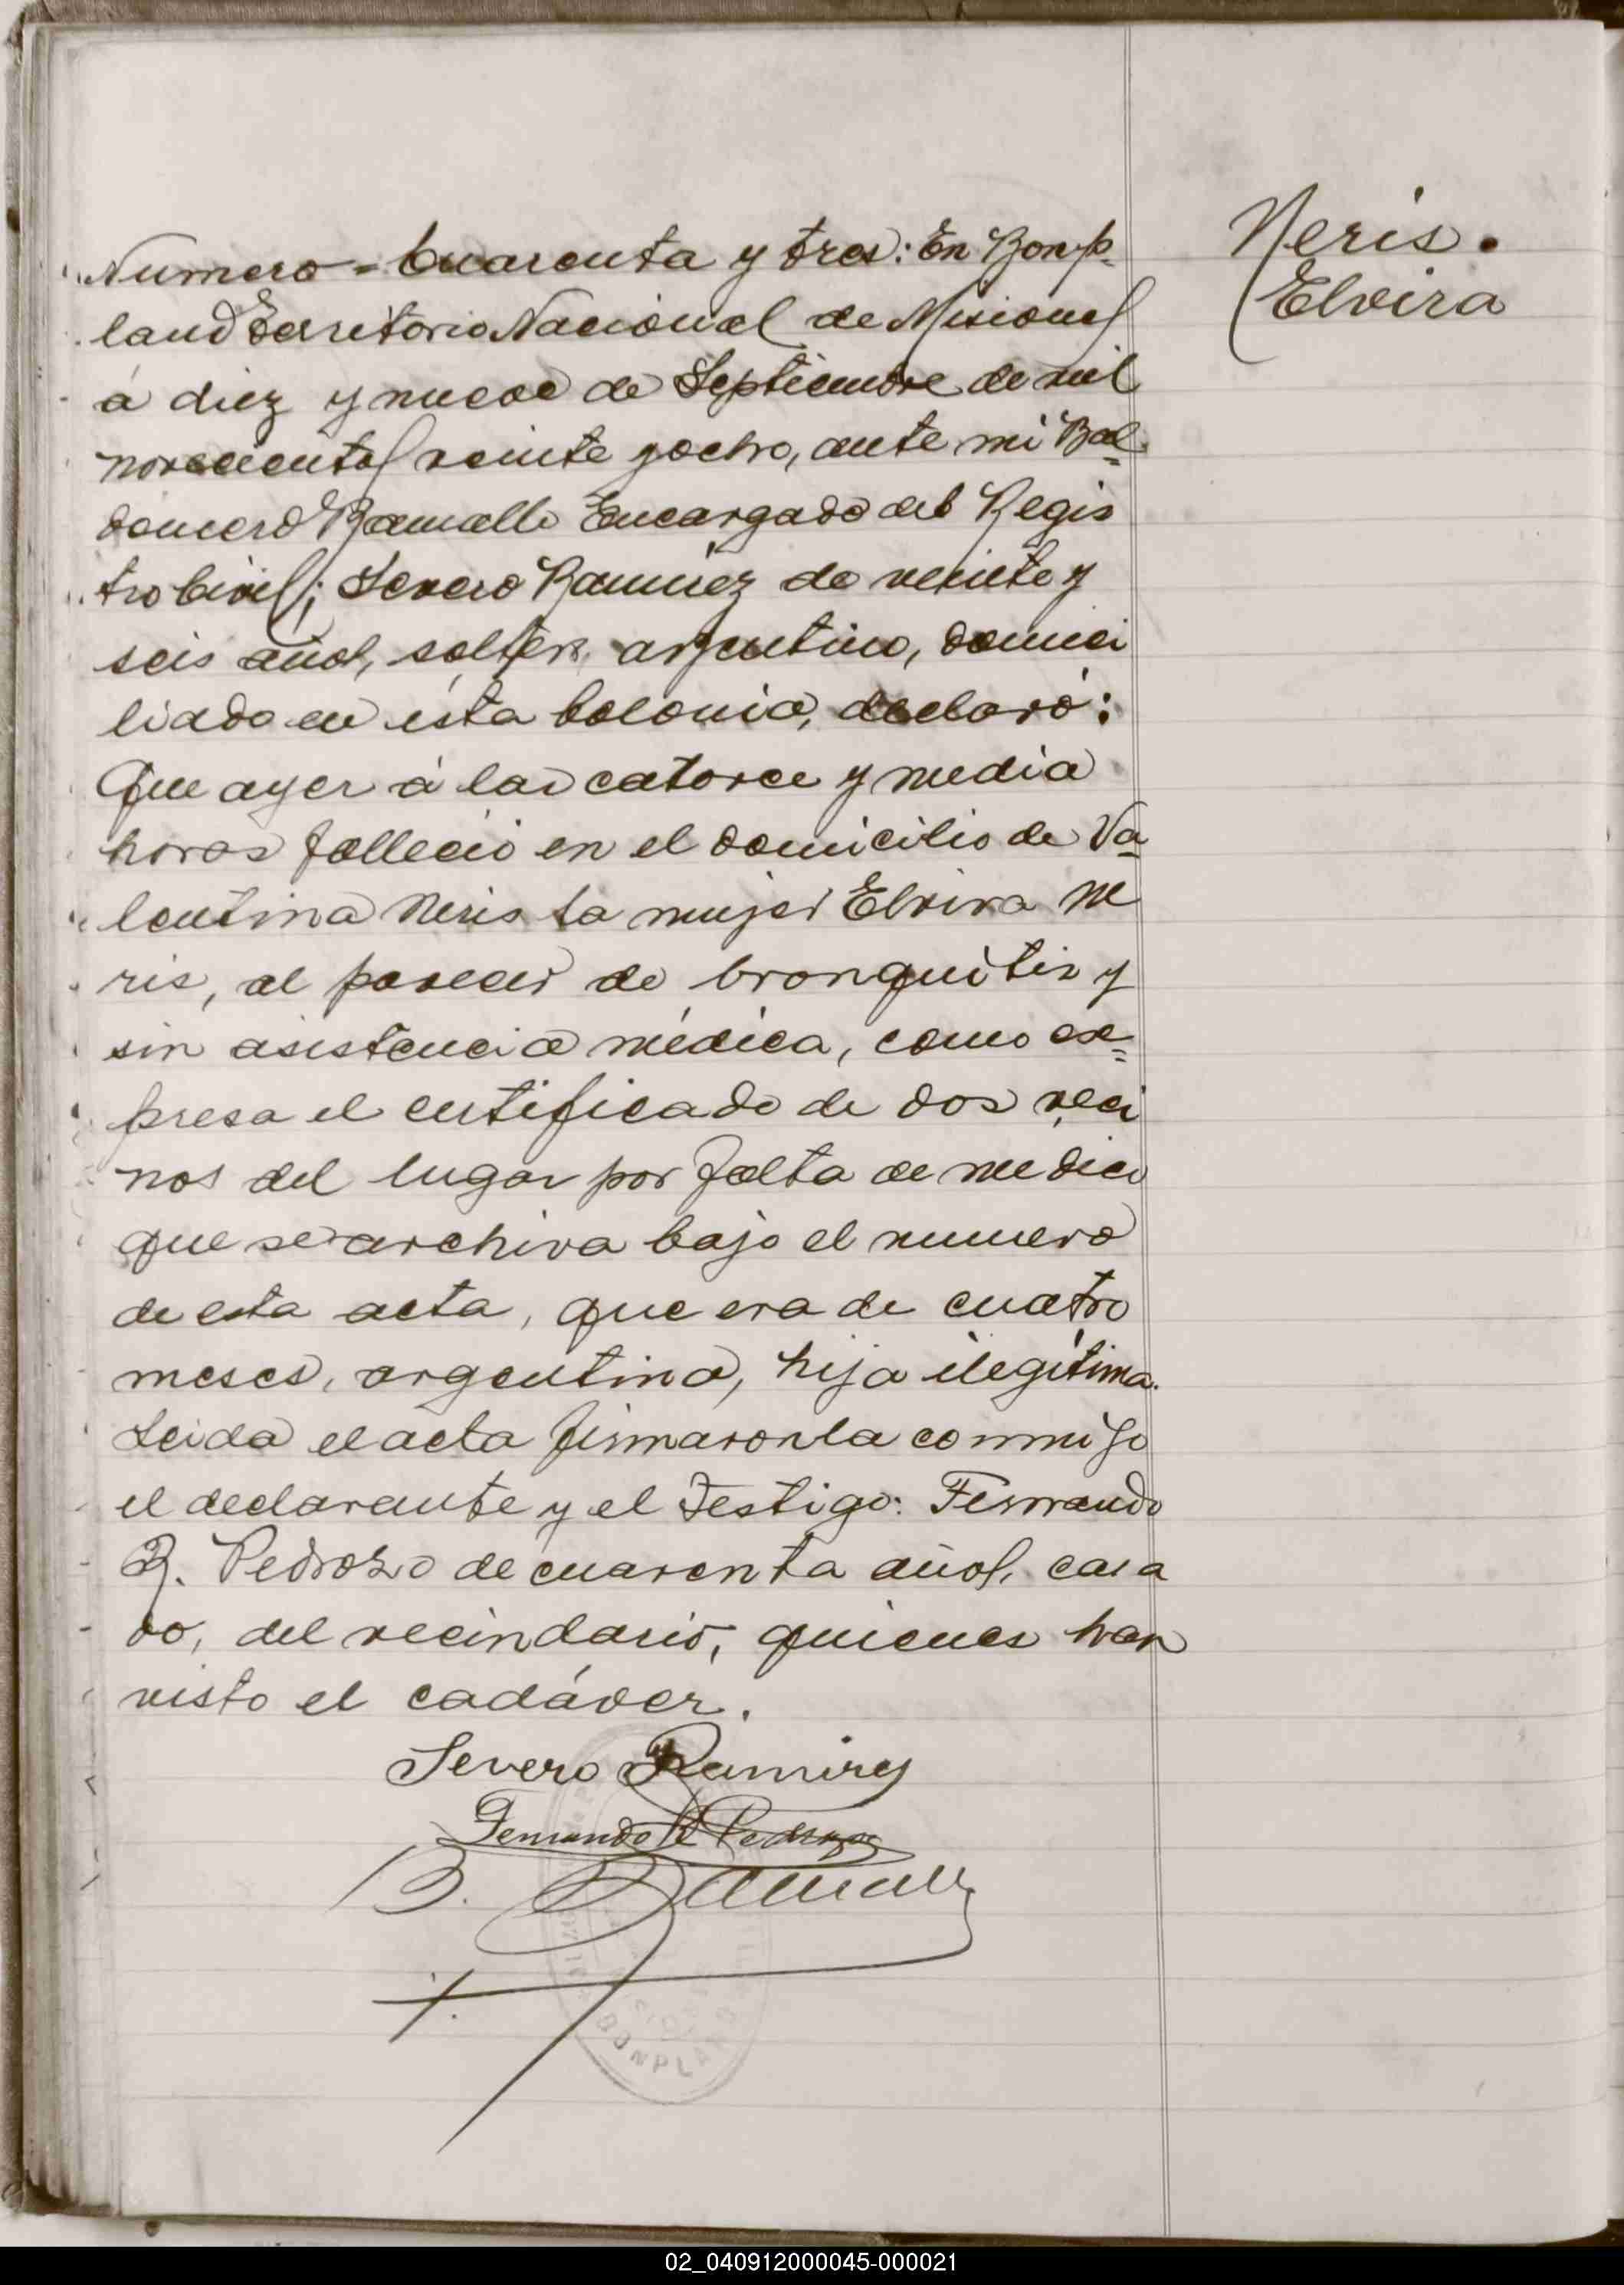 Neris.
Elvira
Numero = Cuarenta y tres: En Bonp=
land Territorio Nacional de Misiones
á diez y nueve de Septiembre de mil
novecientos veinte y ocho, ante mi Bal=
domero Ramallo Encargado del Regis
tro Civil; Severo Ramirez de veinte y
seis años, soltero, argentino, domici
liado en ésta Colonia, declaró:
Que ayer á las catorce y media
horas falleció en el domicilio de Va=
lentina Neris la mujer Elvira Ne
ris, al parecer de bronquitis y
sin asistencia médica, como ex=
presa el certificado de dos veci
nos del lugar por falta de medico
que se archiva bajo el numero
de esta acta, que era de cuatro
meses, argentina, hija ilegítima.
Leida el acta firmaronla conmigo
el declarante y el testigo: Fernando
R. Pedrozo de cuarenta años, casa
do, del vecindario, quienes han
visto el cadáver.
Severo Ramirez
Fernando R Pedrozo
B. Ramallo
BONPLAND
02_040912000045-000021